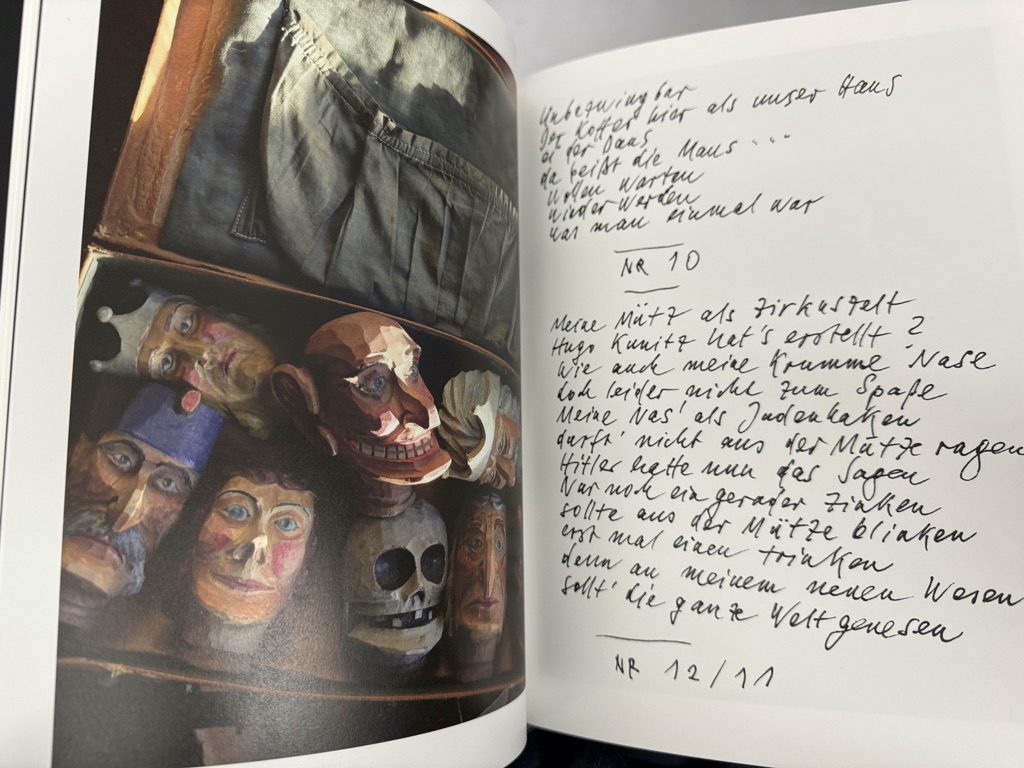 Unbezwingbar
Der Koffer hier als unser Haus
ei der Daus
da beißt die Maus ...
Wollen warten
wieder werden
was man einmal war
NR 10
Meine Mütz als Zirkuszelt
Hugo Kunitz hat's erstellt?
Wie auch meine Krumme Nase
doch leider nicht zum Spaße
Meine Nas' als Judenhaken
durft' nicht aus der Mütze ragen
Hitler hatte nun das Sagen
Nur noch ein gerader Zinken
sollte aus der Mütze blinken
erst mal einen trinken
denn an meinem neuen Wesen
sollt' die ganze Welt genesen
NR 12/11